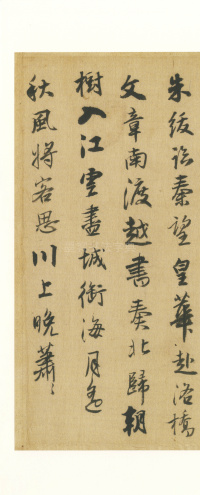 朱紱臨秦望皇華赴洛橋
文章南渡越書奏北歸朝
樹入江雲盡城銜海月遙
秋風將客思川上晚蕭〻